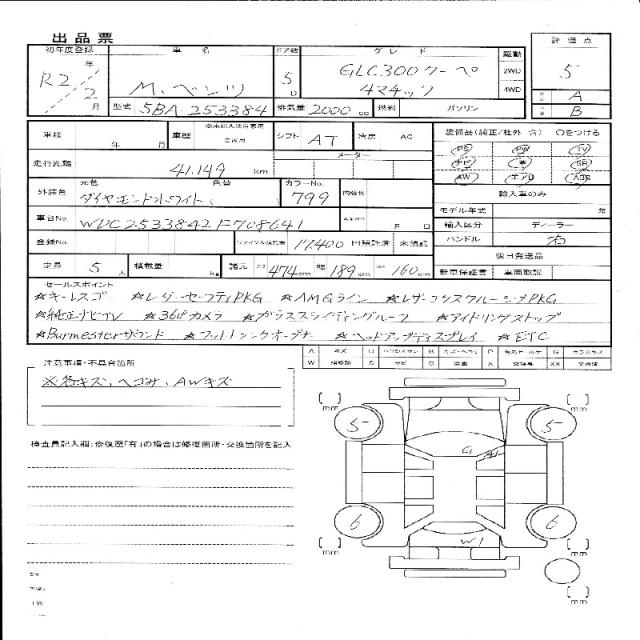 出品票
初年度登録 車名 ドア数 グレード 駆動 評価点
R2年 2月 M.ベンツ 5D GLC300クーペ 4マチック 2WD 4WD 5
型式 5BA 253384 排気量 2000cc 燃料 ガソリン A B
車検 年 月 車歴 シフト AT 冷房 AC 装備品(純正/社外 含) ○をつける
走行距離 41,149 km メーター PS PW TV
ナビ 革 SR
外装色 元色 ダイヤモンドホワイト 色替 カラーNo. 799 内装色 AW エアB ABS
輸入車のみ
車台No. WDC2533842F708641 月 日 モデル年式 年
輸入区分 ディーラー
登録No. リサイクル預託金 17,400 円預託済 未預託 ハンドル 右
後日発送品
定員 5人 積載量 kg 諸元 長さ 474cm 幅 189cm 高さ 160cm 新車保証書 車両取説
セールスポイント
☆キーレスゴー ☆レーダーセーフティPKG ☆AMGライン ☆レザーエクスクルーシブPKG
☆純正ナビTV ☆360°カメラ ☆ガラススライディングルーフ ☆アイドリングストップ
☆Burmesterサウンド ☆フットトランクオープナー ☆ヘッドアップディスプレイ ☆ETC
注意事項・不具合箇所
※各キズ、ヘコみ、AWキズ
検査員記入欄:修復歴「有」の場合は修復箇所・交換箇所を記入
mm mm
5 5
G A1
6 6
W1
mm mm
mm